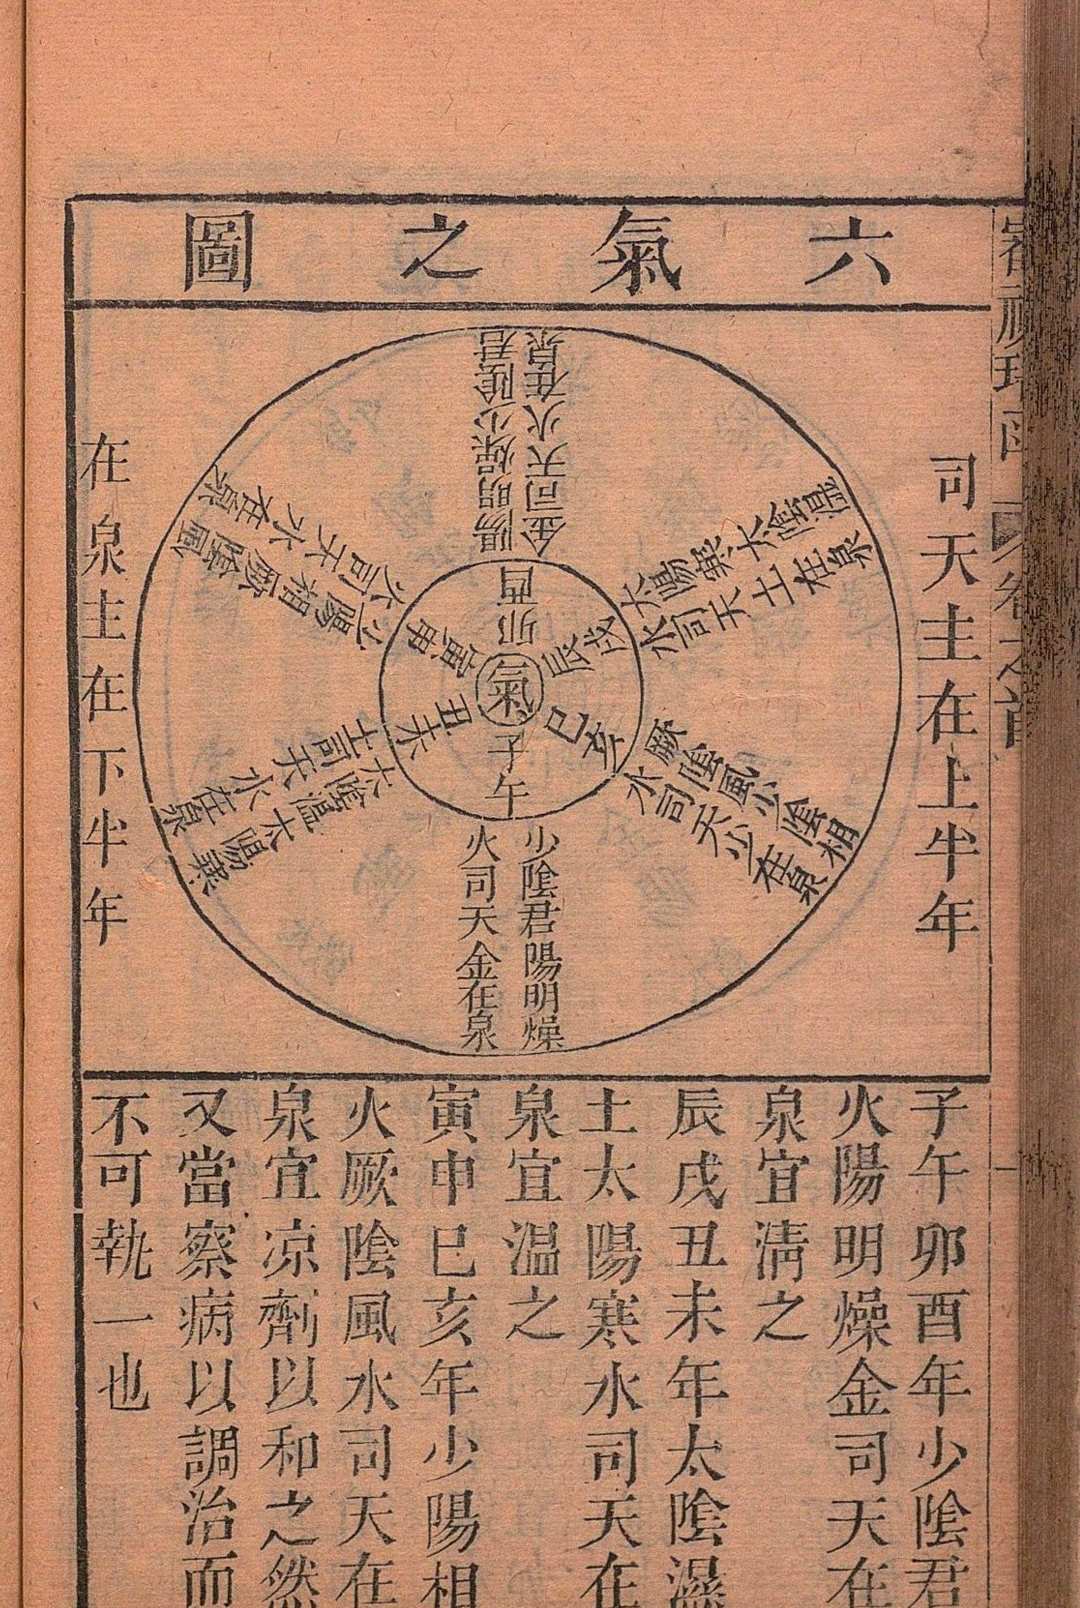 六氣之圖
司天主在上半年
在泉主在下半年
氣
子午
少陰君陽明燥
火司天金在泉
丑未
太陰溫太陽寒
土司天水在泉
寅申
少陽相厥陰風
火司天木在泉
卯酉
陽明燥少陰君
金司天火在泉
辰戌
太陽寒太陰溫
水司天土在泉
巳亥
厥陰風少陰相
木司天少在泉
子午卯酉年少陰君
火陽明燥金司天在
泉宜淸之
辰戌丑未年太陰濕
土太陽寒水司天在
泉宜温之
寅申巳亥年少陽相
火厥陰風木司天在
泉宜凉劑以和之然
又當察病以調治而
不可執一也
卷之首